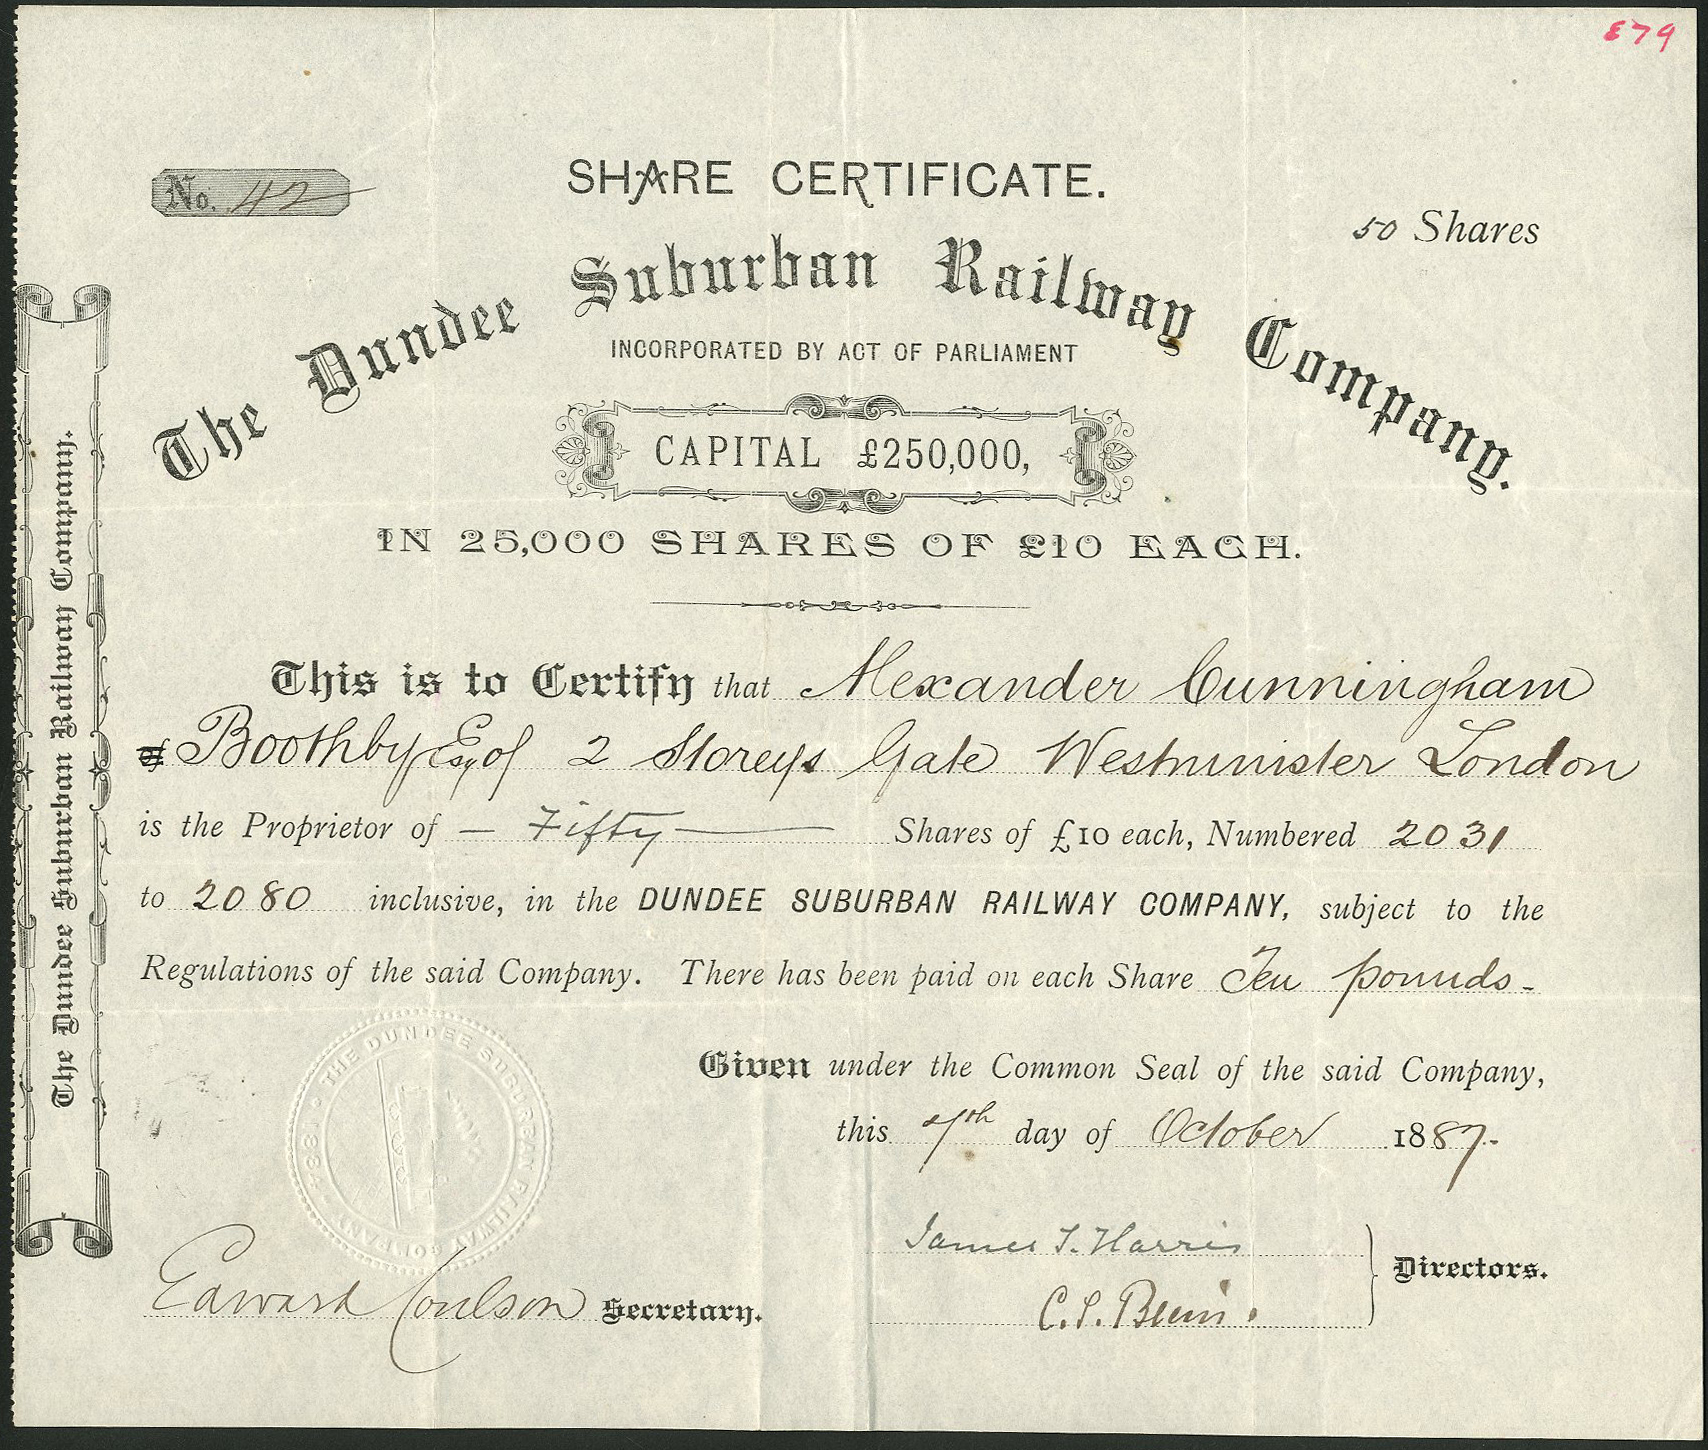 £79
SHARE CERTIFICATE.
No. 42
50 Shares
The Dundee Suburban Railway Company.
INCORPORATED BY ACT OF PARLIAMENT
CAPITAL £250,000,
IN 25,000 SHARES OF £10 EACH.
This is to Certify that Alexander Cunningham
of Boothby Esq of 2 Storeys Gate Westminister London
is the Proprietor of — Fifty — Shares of £10 each, Numbered 2031
to 2080 inclusive, in the DUNDEE SUBURBAN RAILWAY COMPANY, subject to the
Regulations of the said Company. There has been paid on each Share Ten pounds -
Given under the Common Seal of the said Company,
this 7th day of October 1887.-
THE DUNDEE SUBURBAN RAILWAY COMPANY · 1884 ·
James T. Harris
Directors.
Edward Coulson Secretary.
The Dundee Suburban Railway Company.